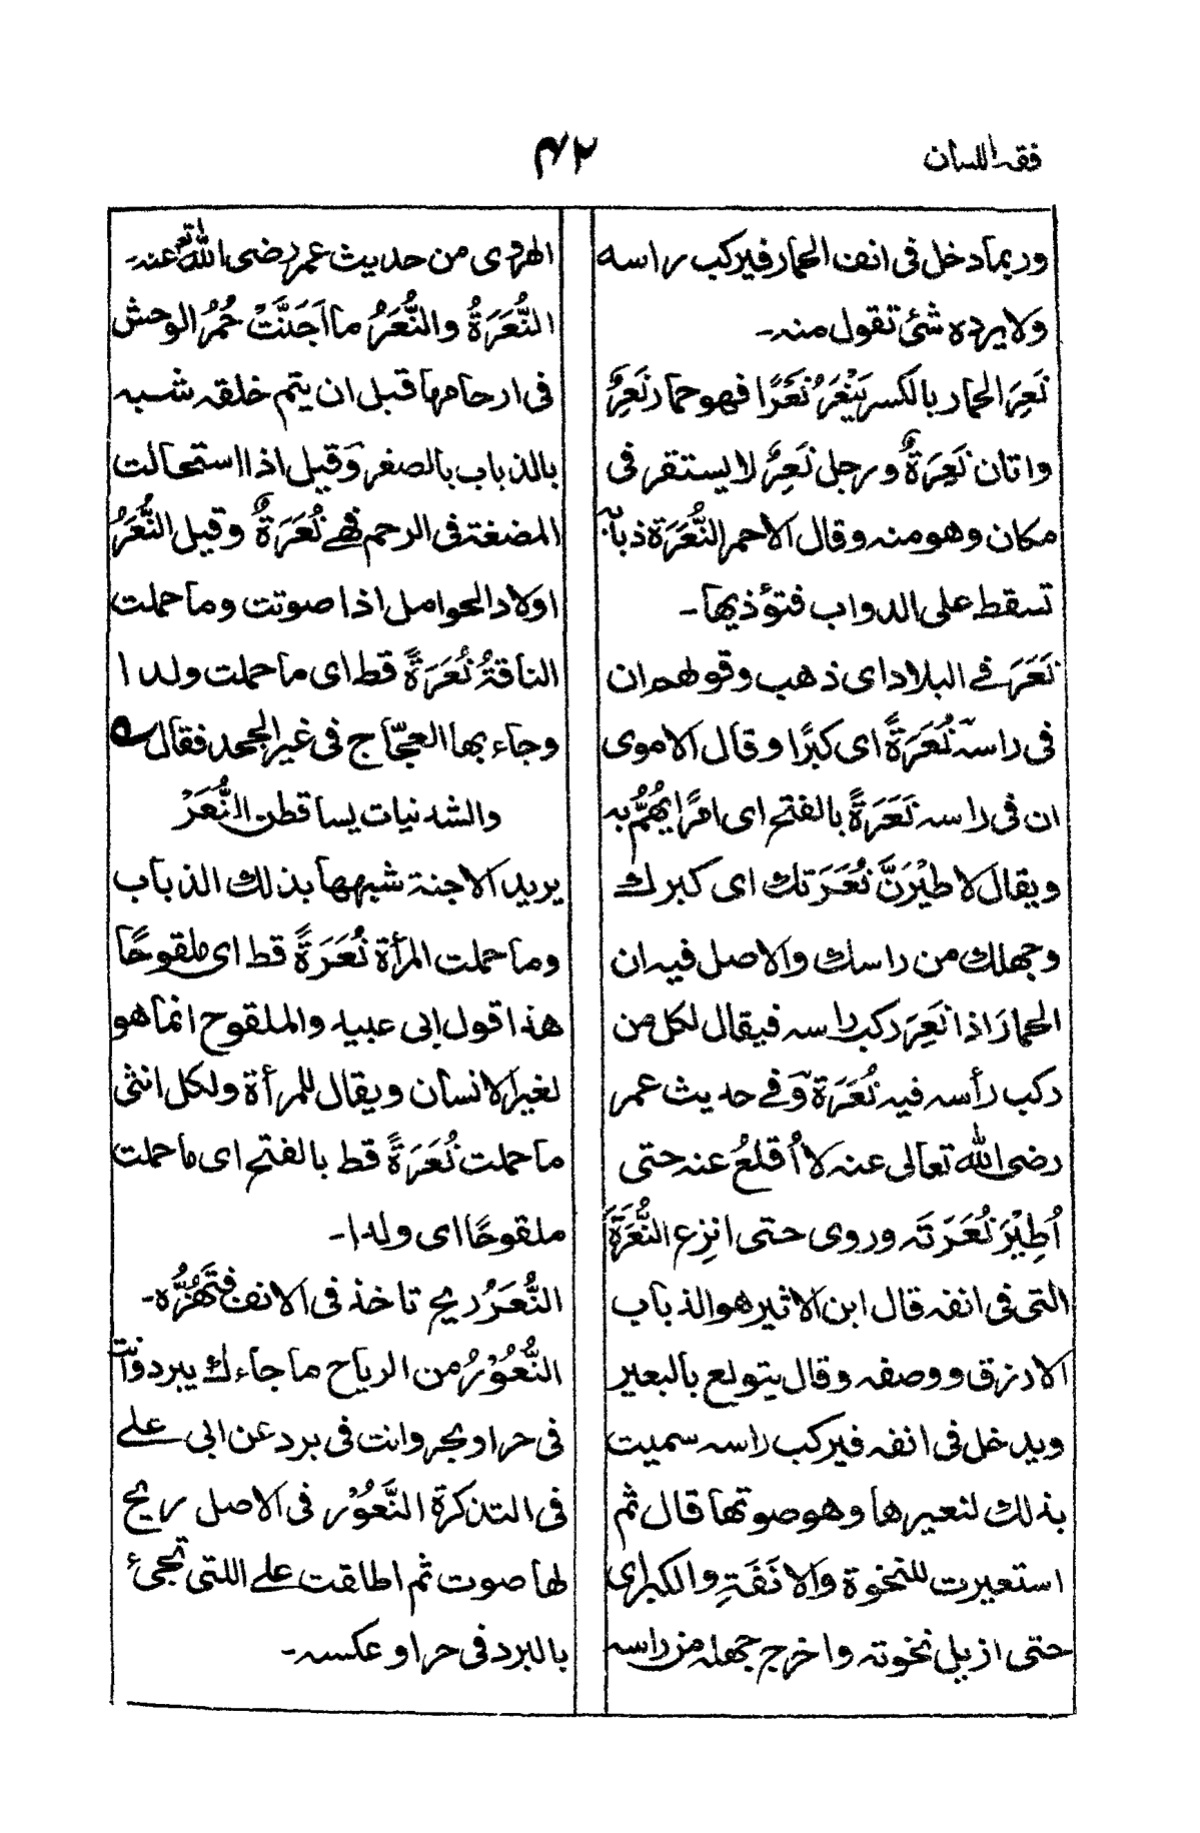 فقہ اللسان
۴۲
وربما دخل فی انف الحمار فیرکب راسہ
ولا یردہ شئ تقول منہ۔
نَعِرَ الحمار بالکسر یَنْعَرُ نَعَرًا فهو حمار نَعِرٌ
واتان نَعِرَةٌ ورجل نَعِرٌ لا یستقر فی
مکان وهو منہ وقال الاحمر النُّعَرَة ذباب
تسقط علی الدواب فتؤذیها۔
نَعَرَ فے البلاد ای ذهب وقولهم ان
فی راسہ نُعَرَةً ای کبرًا وقال الاموی
ان فی راسہ نَعَرَةً بالفتح ای امرًا یَهُمُّ بہ
ویقال لاطیْرَنَّ نُعَرَتك ای کبرك
وجهلك من راسك والاصل فیہ ان
الحمارَ اذا نَعِرَ رکب راسہ فیقال لکل من
رکب رأسہ فیہ نُعَرَة وفے حدیث عمر
رضی اللہ تعالی عنہ لا اُقلعُ عنہ حتی
اُطِیْرَ نُعَرَتَہ وروی حتی انزِع النُّعَرَةَ
التی فی انفہ قال ابن الاثیر هو الذباب
الازرق ووصفہ وقال یتولع بالبعیر
ویدخل فی انفہ فیرکب راسہ سمیت
بذلك لنعیرها وهو صوتها قال ثم
استعیرت للنخوة والانَفَةِ والکبر ای
حتی ازیل نخوتہ واخرج جهلہ من راسہ
الهروی من حدیث عمر رضی اللہ تع عنہ۔
النُّعَرَةُ والنُّعَرُ ما اَجَنَّتْ حُمُرُ الوحش
فی ارحامها قبل ان یتم خلقہ شبہ
بالذباب بالصغر وقیل اذا استحالت
المضغة فی الرحم فهے نُعَرَةٌ وقیل النُّعَرُ
اولاد الحوامل اذا صوتت وما حملت
الناقةُ نُعَرَةً قط ای ما حملت ولدا
وجاء بها العجّاج فی غیر الجحد فقال
والشدنیات یساقطن النُّعَرْ
یرید الاجنة شبهها بذلك الذباب
وما حملت المرأة نُعَرَةً قط ای ملقوحًا
هذا قول ابی عبید والملقوح انما هو
لغیر الانسان ویقال للمرأة ولکل انثی
ما حملت نُعَرَةً قط بالفتح ای ما حملت
ملقوحًا ای ولدا۔
النُّعَرُ ریح تاخذ فی الانف فتَهُزُّہ۔
النُّعُوْرُ من الریاح ما جاءك ببرد وانت
فی حر او بحر وانت فی برد عن ابی علے
فی التذکرة النَّعُوْر فی الاصل ریح
لها صوت ثم اطلقت علے اللتی تجیئ
بالبرد فی حر او عکسہ۔